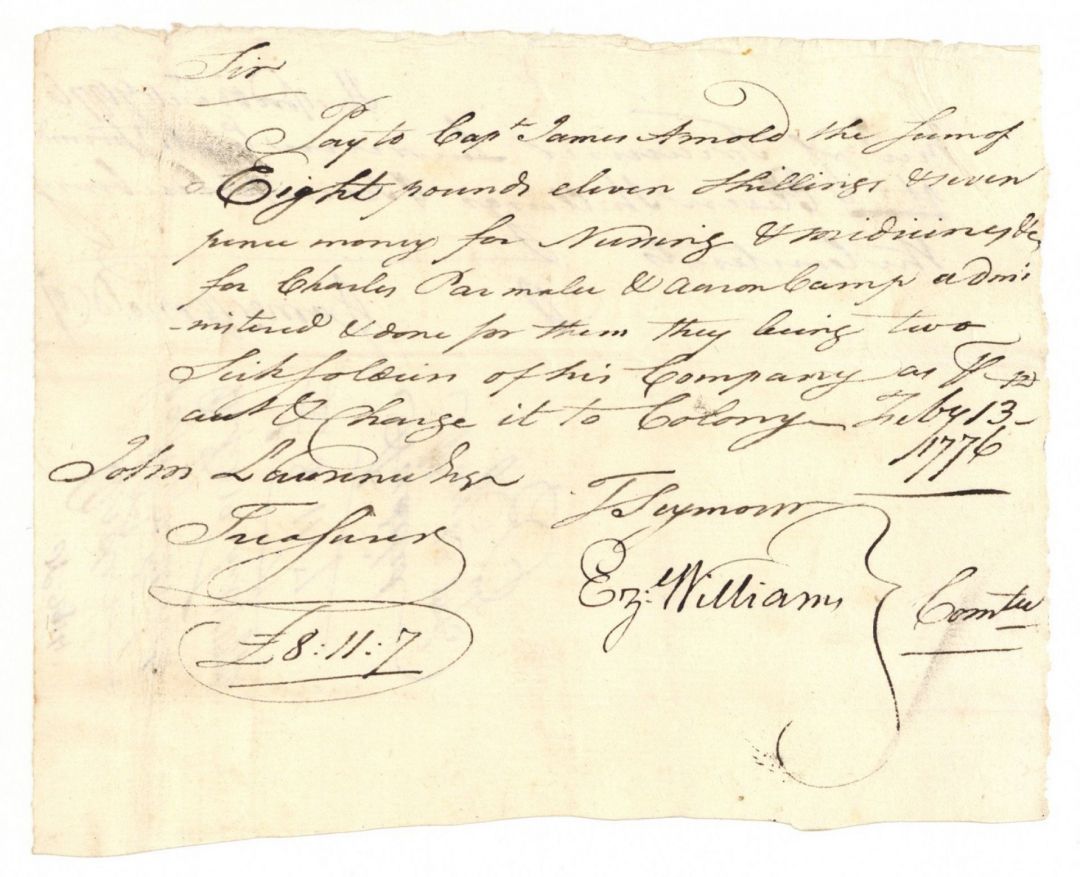 Sir
Pay to Capt James Arnold the Sum of
Eight pounds eleven Shillings & seven
pence money for Nursing & medicines &c
for Charles Parmalee & Aaron Camp admi
nistered & done for them they being two
Sick soldiers of his Company as Pr
acct & Charge it to Colony Feby 13
1776
John Lawrence Esqr
Treasurer
£8:11:7
T Seymour
Ezl Williams
Comtee